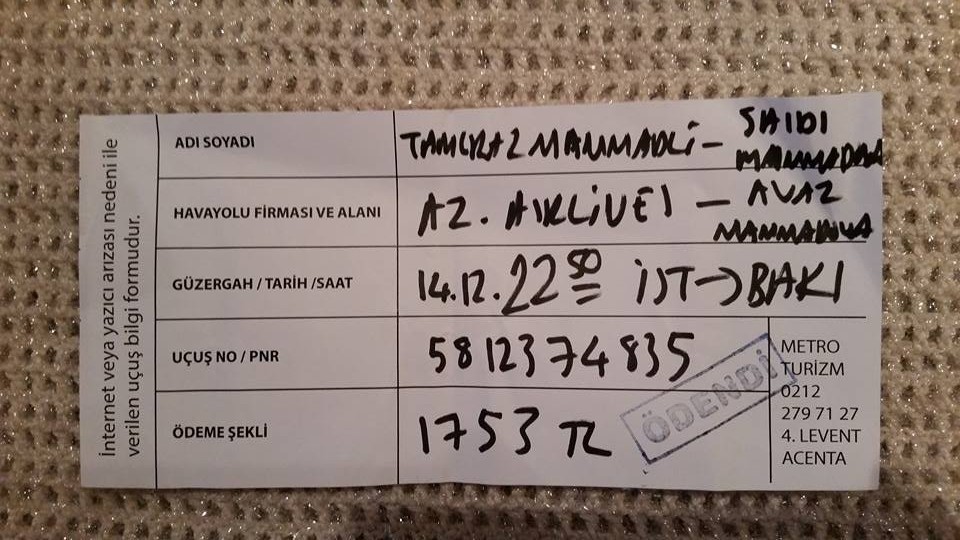 İnternet veya yazıcı arızası nedeni ile
verilen uçuş bilgi formudur.
ADI SOYADI
TAMCRAZ MAMMADLİ - SAIDI
MAMMADOVA
HAVAYOLU FİRMASI VE ALANI
AZ. AIRLİVEI - AVAZ
MAMMADOVA
GÜZERGAH / TARİH /SAAT
14.12. 22 50 İST → BAKI
UÇUŞ NO / PNR
5812374835
ÖDEME ŞEKLİ
1753 TL
ÖDENDİ
METRO
TURİZM
0212
279 71 27
4. LEVENT
ACENTA